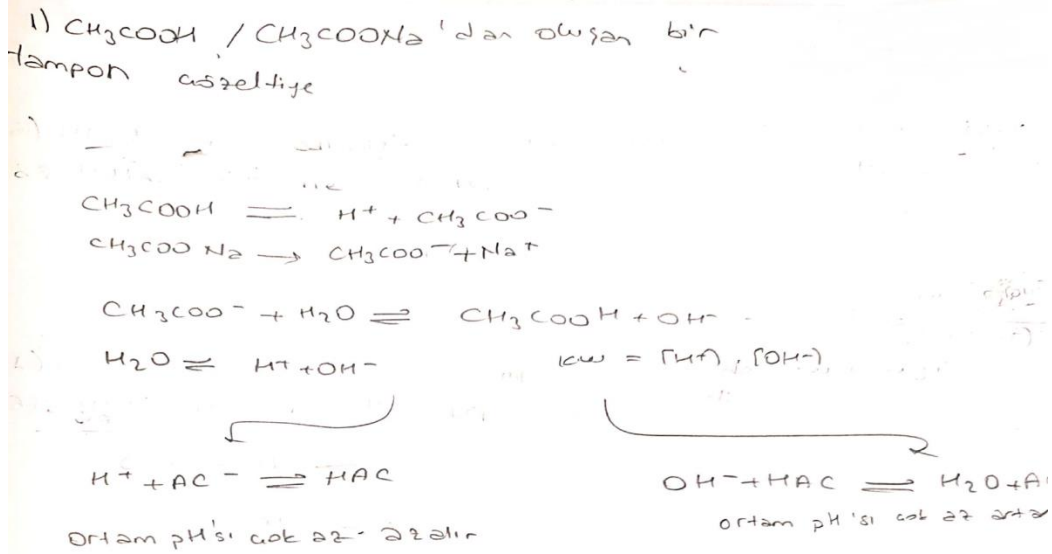 1) CH3COOH / CH3COONa'dan oluşan bir
tampon çözeltiye
CH3COOH ⇌ H+ + CH3COO-
CH3COONa → CH3COO- + Na+
CH3COO- + H2O ⇌ CH3COOH + OH-
H2O ⇌ H+ + OH-
Kw = [H+] . [OH-]
H+ + AC- ⇌ HAC
OH- + HAC ⇌ H2O + A
Ortam pH'sı çok az azalır
ortam pH'sı çok az arta